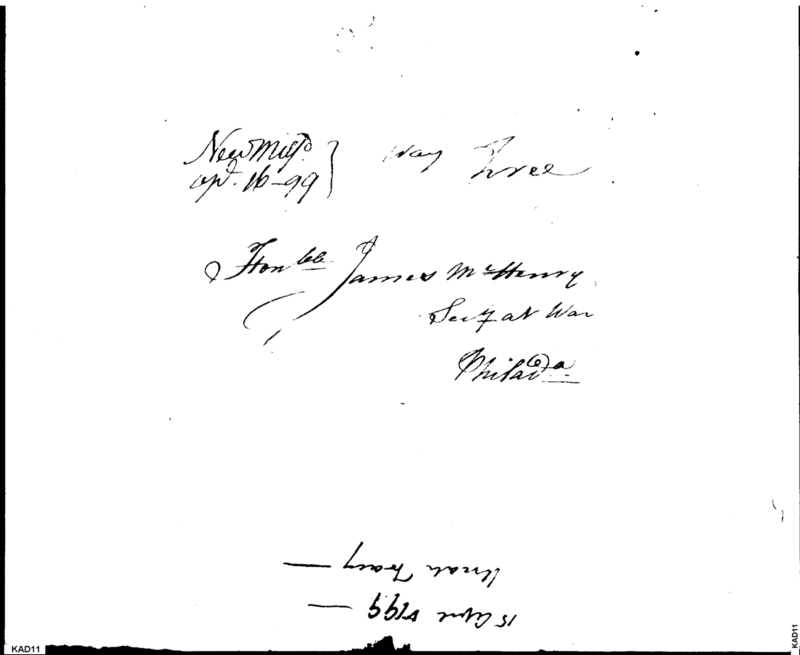 New Milfd. } Way Free
apl. 16-99
Honble James McHenry
Secy at War
Philada
15 April 1799 —
Uriah Tracy —
KAD11
KAD11